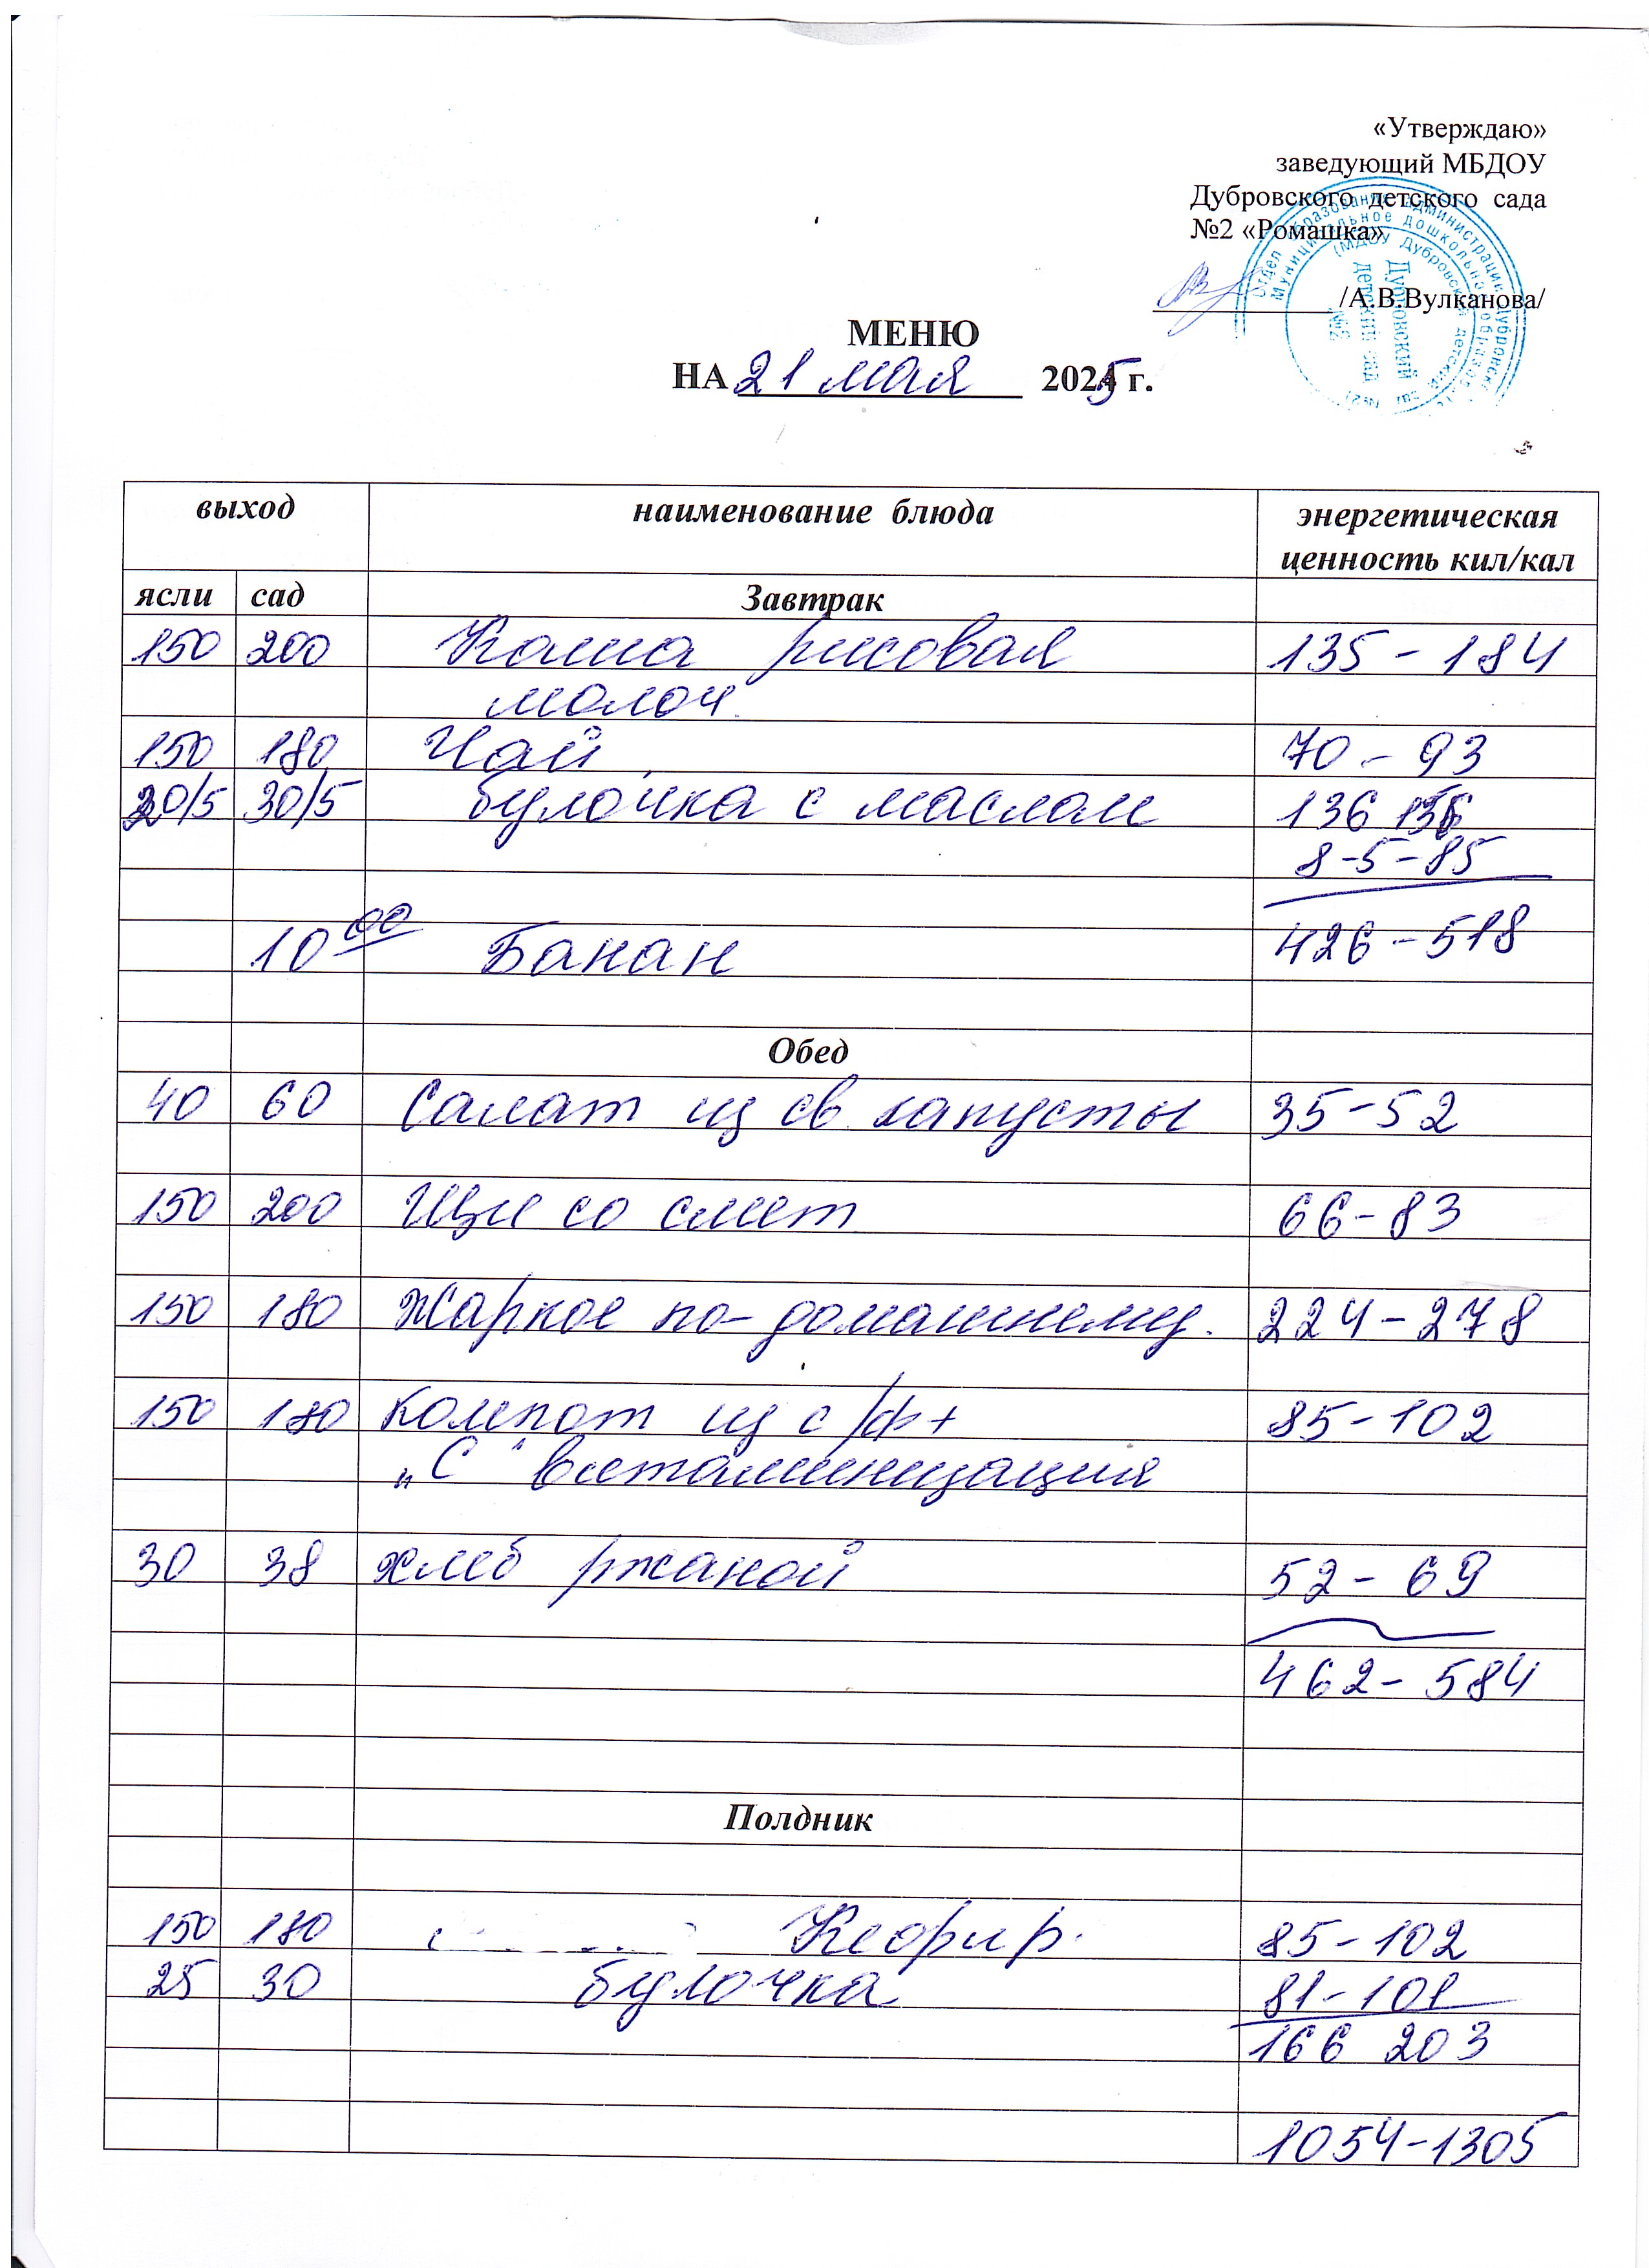 «Утверждаю»
заведующий МБДОУ
Дубровского детского сада
№2 «Ромашка»
/А.В.Вулканова/
МЕНЮ
НА 21 мая 2025 г.
выход наименование блюда энергетическая
ценность кил/кал
ясли сад Завтрак
150 200 Каша рисовая 135 - 184
молоч.
150 180 Чай 70 - 93
20/5 30/5 булочка с маслом 136 156
8-5-85
426 - 518
10 00 Банан
Обед
40 60 Салат из св. капусты 35-52
150 200 Щи со смет 66-83
150 180 Жаркое по-домашнему. 224-278
150 180 Компот из с/ф+ 85-102
„С" витаминизация
30 38 хлеб ржаной 52 - 69
462 - 584
Полдник
150 180 Кефир. 85-102
25 30 булочка 81-101
166 203
1054-1305